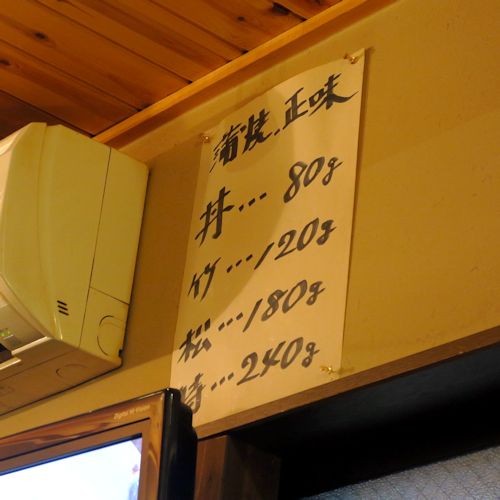 蒲焼.正味
丼…80g
竹…120g
松…180g
特…240g
Digital Hi-Vision